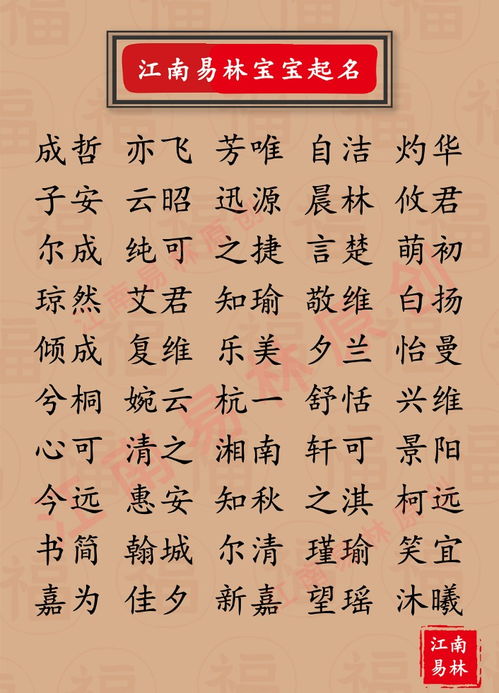 江南易林宝宝起名
成哲 亦飞 芳唯 自洁 灼华
子安 云昭 迅源 晨林 攸君
尔成 纯可 之捷 言楚 萌初
琼然 艾君 知瑜 敬维 白扬
倾成 复维 乐美 夕兰 怡曼
兮桐 婉云 杭一 舒恬 兴维
心可 清之 湘南 轩可 景阳
今远 惠安 知秋 之淇 柯远
书简 翰城 尔清 瑾瑜 笑宜
嘉为 佳夕 新嘉 望瑶 沐曦
江南易林原创
江南
易林